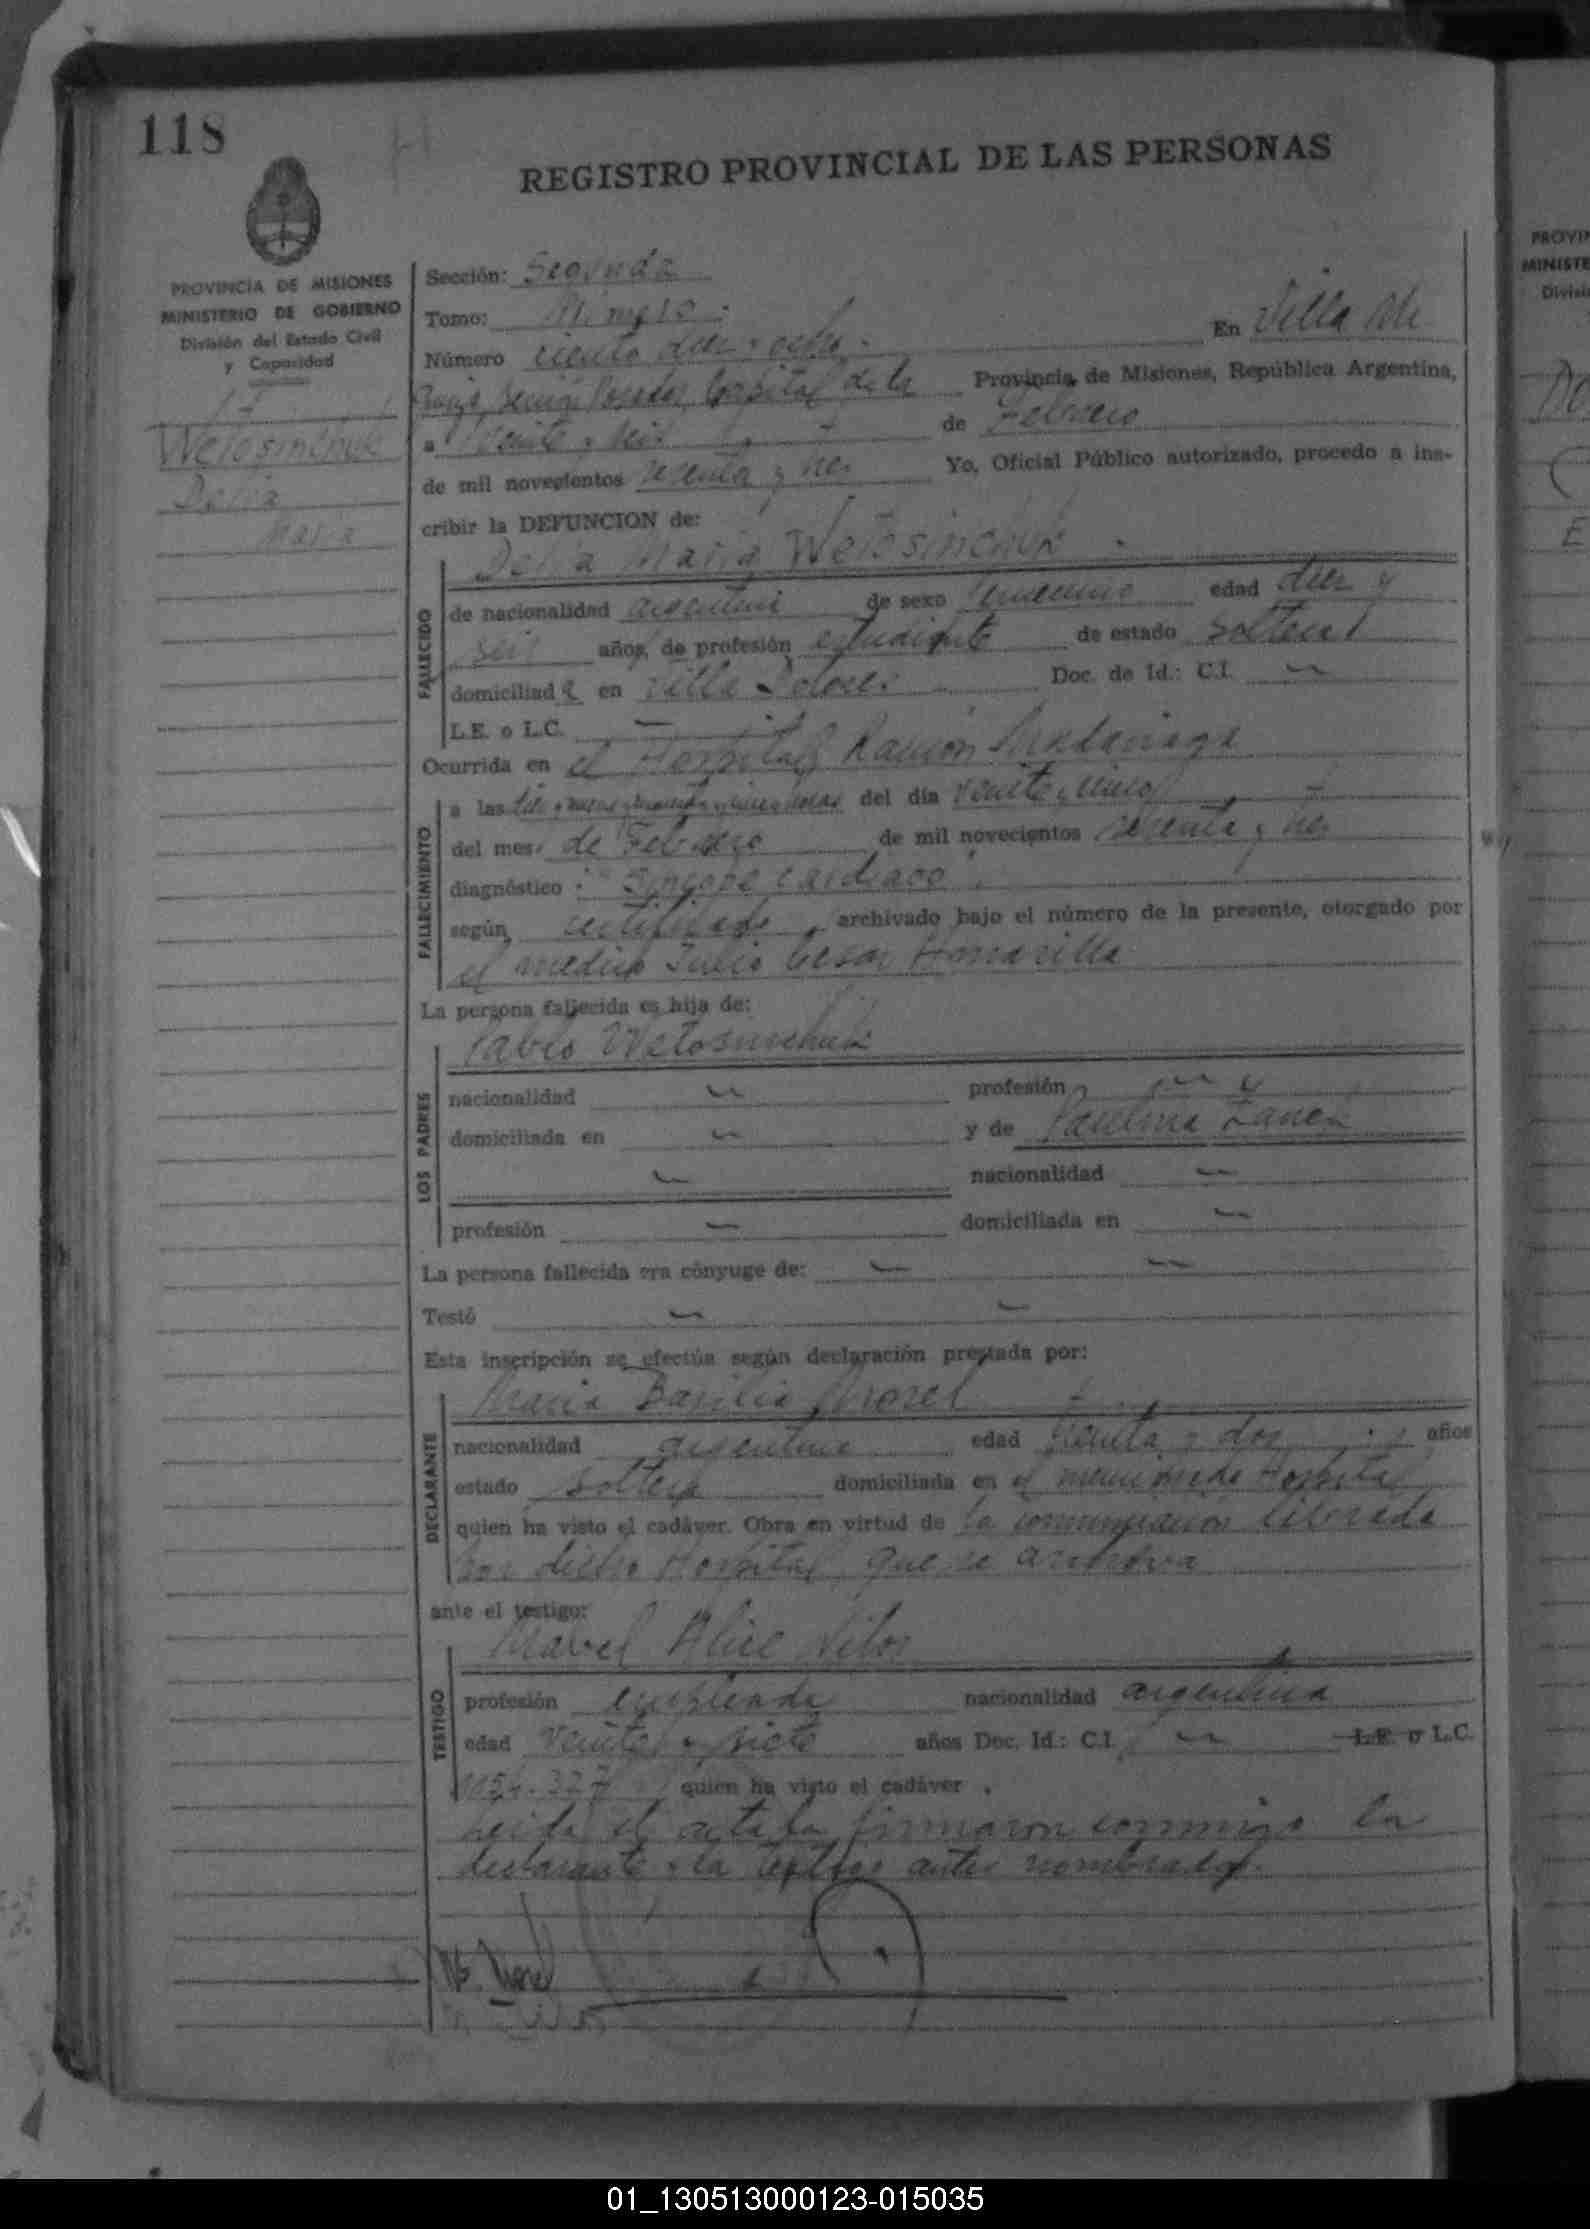 118
REGISTRO PROVINCIAL DE LAS PERSONAS
PROVINCIA DE MISIONES
MINISTERIO DE GOBIERNO
División del Estado Civil
y Capacidad
Wetosinchuk
Delia
Maria
Sección: Segunda
Tomo: Primero
Número ciento diez y ocho. En Villa
Posadas Capital de la Provincia de Misiones, República Argentina,
a veinte y seis de Febrero
de mil novecientos sesenta y tres Yo, Oficial Público autorizado, procedo a ins-
cribir la DEFUNCION de:
Delia Maria Wetosinchuk
FALLECIDO
de nacionalidad argentina de sexo femenino edad diez y
seis años, de profesión estudiante de estado soltera
domiciliada en Villa Dolores Doc. de Id.: C.I.
L.E. o L.C.
Ocurrida en el Hospital Ramón Madariaga
FALLECIMIENTO
a las horas del día veinte y cinco
del mes de Febrero de mil novecientos sesenta y tres
diagnóstico: "Síncope cardiaco".
según certificado archivado bajo el número de la presente, otorgado por
el medico Julio Cesar
La persona fallecida es hija de:
Pablo Wetosinchuk
LOS PADRES
nacionalidad profesión
domiciliada en y de Paulina
nacionalidad
profesión domiciliada en
La persona fallecida era cónyuge de:
Testó
Esta inscripción se efectúa según declaración prestada por:
Maria Basilia Morel
DECLARANTE
nacionalidad argentina edad treinta y dos años
estado soltera domiciliada en el mencionado Hospital
quien ha visto el cadáver. Obra en virtud de la comunicación librada
por dicho Hospital que se archiva
ante el testigo:
Mabel Alice
TESTIGO
profesión empleada nacionalidad argentina
edad veinte y siete años Doc. Id.: C.I. L.E. o L.C.
quien ha visto el cadáver.
Leida el acta la firmaron conmigo la
declarante y la testigo antes nombradas.
M. B. Morel
PROVIN
MINISTE
Divisió
01_130513000123-015035